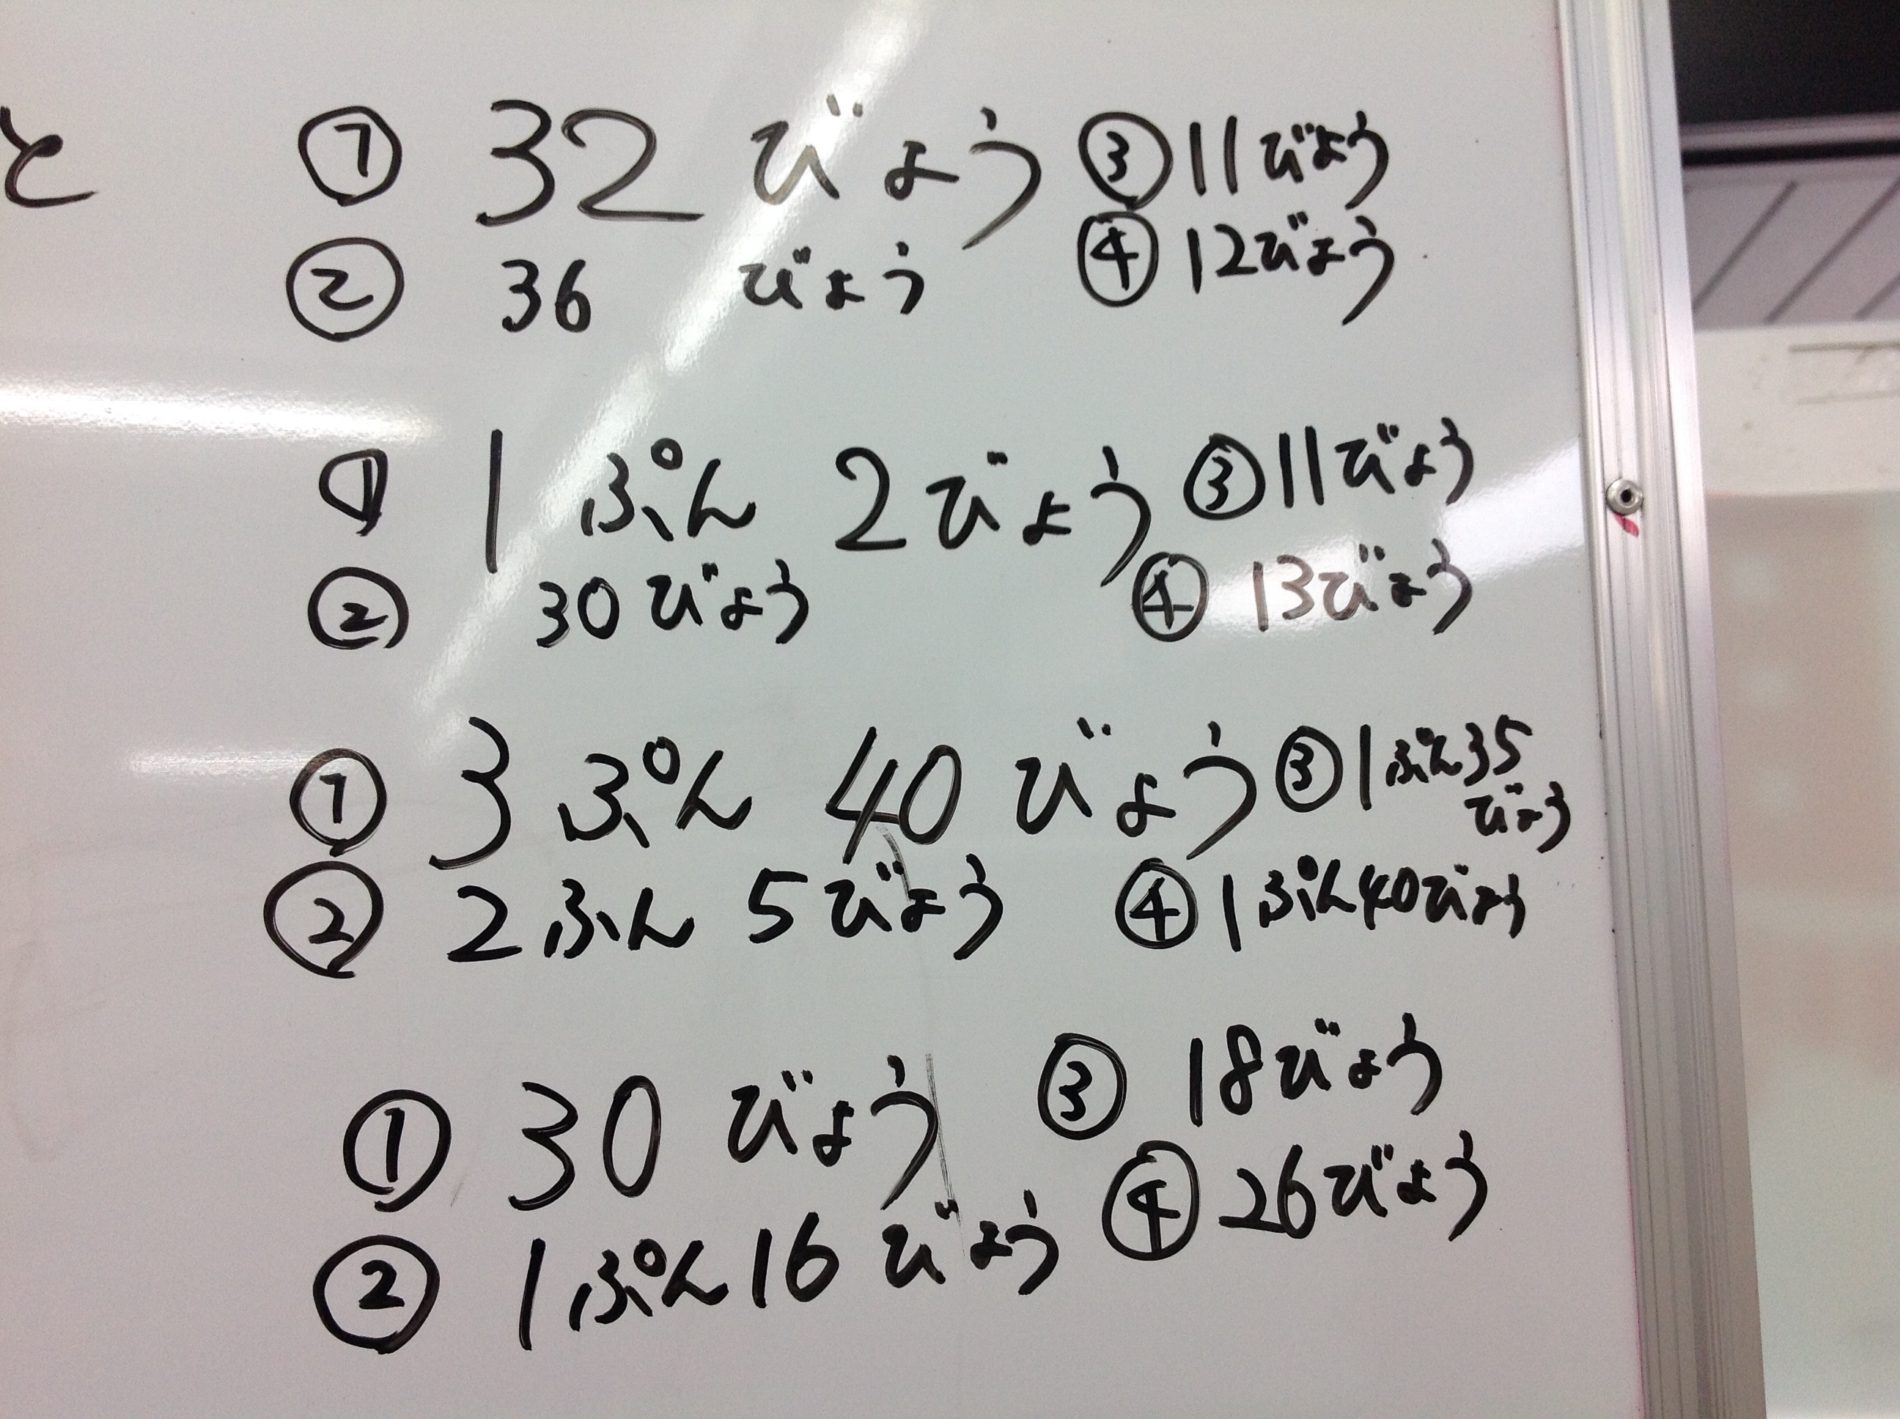 と
① 32 びょう ③ 11びょう
② 36 びょう ④ 12びょう
① 1 ぷん 2びょう ③ 11びょう
② 30びょう ④ 13びょう
① 3 ぷん 40 びょう ③ 1ぷん35
びょう
② 2ふん 5びょう ④ 1ぷん40びょう
① 30 びょう ③ 18びょう
② 1ぷん16びょう ④ 26びょう